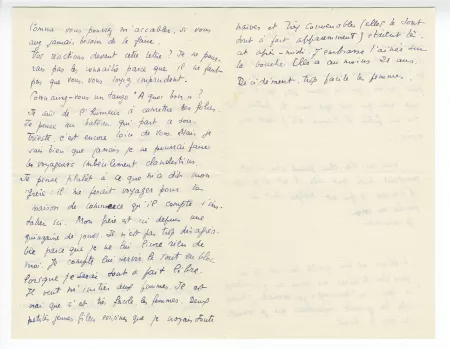 Comme vous pourrez m'accabler, si vous
avez jamais besoin de le faire.
Vos réactions devant cette lettre ? Je ne pour-
rais pas les connaître parce que il ne faut
pas que vous vous soyez imprudent.
Connaissez-vous un tango "A quoi bon" ?
Je suis de l'humeur à caresser des folies.
Je pense au bateau qui part à
Trieste, c'est encore loin de Sous Mais, je
sais bien que jamais je ne pourrai faire
les voyageurs imbécilement clandestins.
Je pense plutôt à ce que m'a dit mon
frère : il me ferait voyager pour la
maison de commerce qu'il compte s'ins-
taller ici. Mon frère est ici depuis une
quinzaine de jours. Il n'est pas trop désagréa-
ble parce que je ne lui livre rien de
moi. Je compte lui verser le tout en bloc
lorsque je serai tout à fait libre.
Il veut m' aux femmes. Il est
vrai que c'est très facile les femmes. Deux
petites jeunes filles voisines que je croyais toute
naïves et très convenables (elles le sont
tout à fait apparemment) étaient là
cet après-midi. J'embrasse l'aînée sur
la bouche. Elle a au moins 21 ans.
Décidément trop facile les femmes.